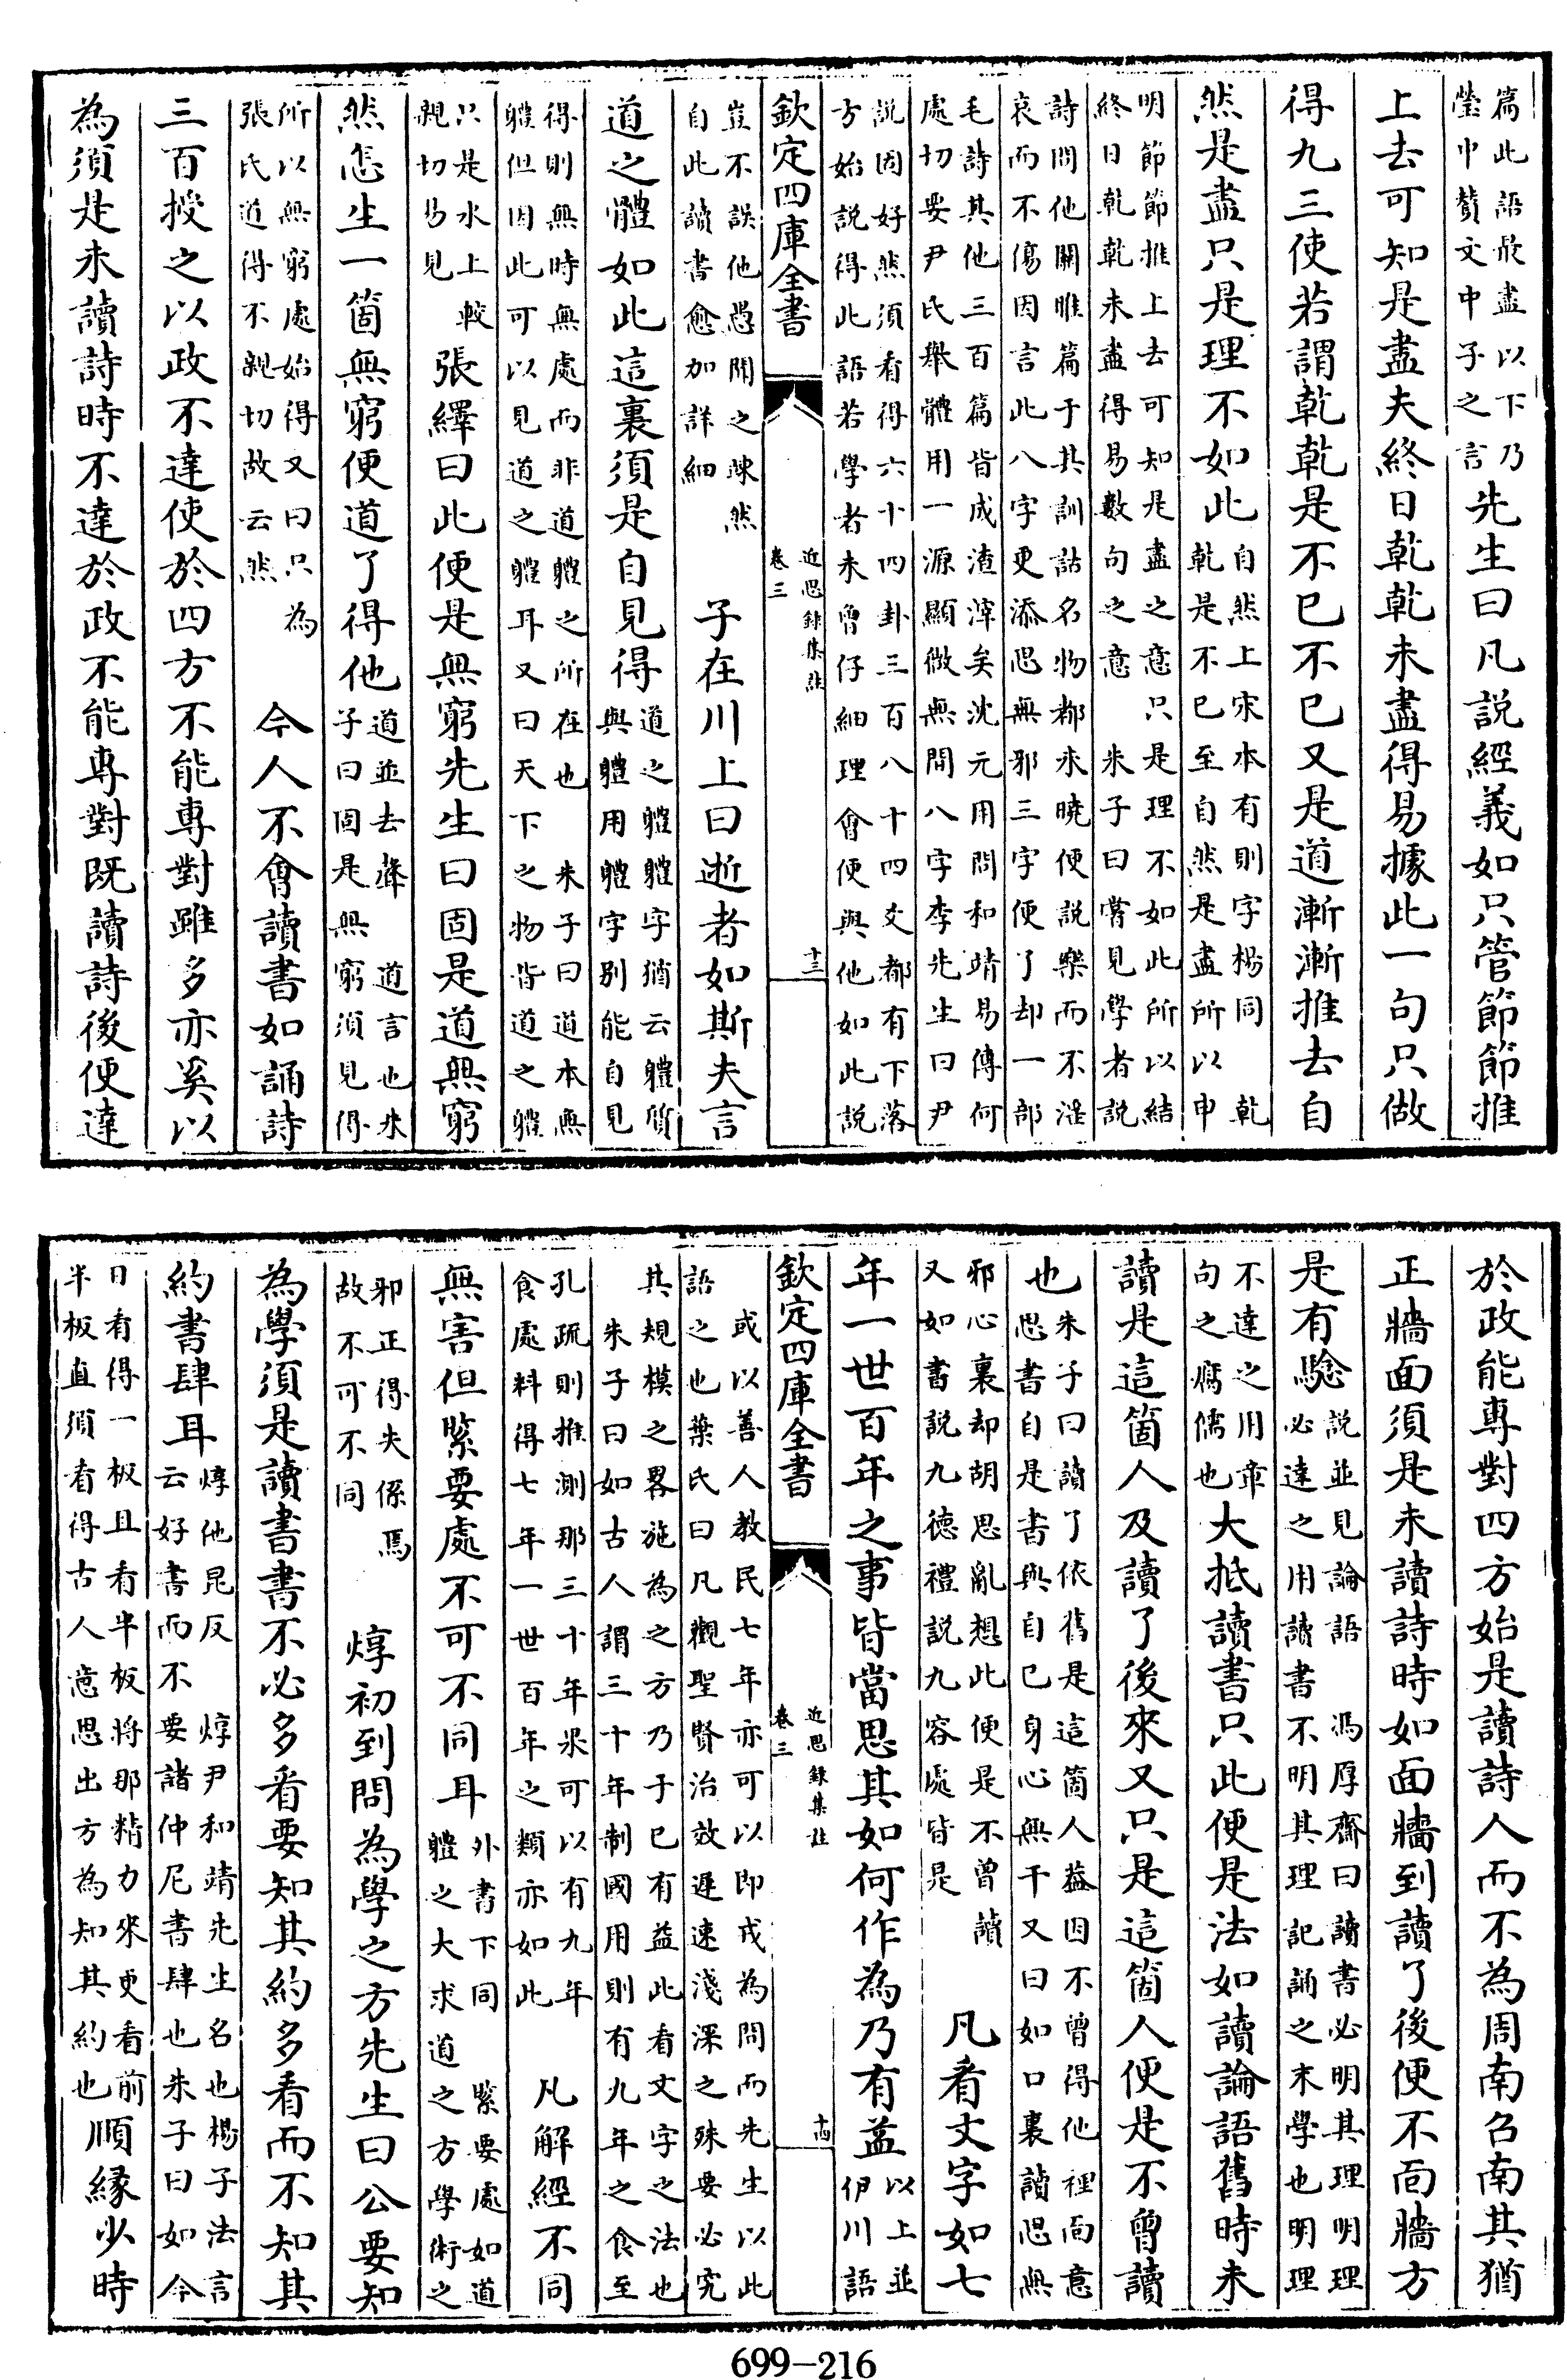 篇此語最盡以下乃
瑩中贊文中子之言
先生曰凡説經義如只管節節推
上去可知是盡夫終日乾乾未盡得易據此一句只做
得九三使若謂乾乾是不已不已又是道漸漸推去自
然是盡只是理不如此
自然上宋本有則字楊同 乾
乾是不已至自然是盡所以申
明節節推上去可知是盡之意只是理不如此所以結
終日乾乾未盡得易數句之意 朱子曰嘗見學者説
詩問他關雎篇于其訓詁名物都未曉便説樂而不淫
哀而不傷因言此八字更添思無邪三字便了却一部
毛詩其他三百篇皆成渣滓矣沈元用問和靖易傳何
處切要尹氏舉體用一源顯微無間八字李先生曰尹
説固好然須看得六十四卦三百八十四爻都有下落
方始説得此語若學者未曾仔細理會便與他如此説
欽定四庫全書
近思録集註
卷三
十三
豈不誤他愚聞之悚然
自此讀書愈加詳細
子在川上曰逝者如斯夫言
道之體如此這裏須是自見得
道之體體字猶云體質
與體用體字别能自見
得則無時無處而非道體之所在也 朱子曰道本無
體但因此可以見道之體耳又曰天下之物皆道之體
只是水上較
親切易見
張繹曰此便是無窮先生曰固是道無窮
然怎生一箇無窮便道了得他
道並去聲 道言也朱
子曰固是無窮須見得
所以無窮處始得又曰只為
張氏道得不親切故云然
今人不會讀書如誦詩
三百授之以政不達使於四方不能專對雖多亦奚以
為須是未讀詩時不達於政不能專對既讀詩後便達
於政能專對四方始是讀詩人而不為周南召南其猶
正牆面須是未讀詩時如面牆到讀了後便不面牆方
是有驗
説並見論語 馮厚齋曰讀書必明其理明理
必達之用讀書不明其理記誦之末學也明理
不達之用章
句之腐儒也
大抵讀書只此便是法如讀論語舊時未
讀是這箇人及讀了後來又只是這箇人便是不曾讀
也
朱子曰讀了依舊是這箇人葢因不曾得他裡面意
思書自是書與自已身心無干又曰如口裏讀思無
邪心裏却胡思亂想此便是不曾讀
又如書説九德禮説九容處皆是
凡看文字如七
年一世百年之事皆當思其如何作為乃有益
以上並
伊川語
欽定四庫全書
近思録集註
卷三
十四
或以善人教民七年亦可以即戎為問而先生以此
語之也葉氏曰凡觀聖賢治效遲速淺深之殊要必究
其規模之畧施為之方乃于已有益此看文字之法也
朱子曰如古人謂三十年制國用則有九年之食至
孔疏則推測那三十年果可以有九年
食處料得七年一世百年之類亦如此
凡解經不同
無害但緊要處不可不同耳
外書下同 緊要處如道
體之大求道之方學術之
邪正得失係焉
故不可不同
焞初到問為學之方先生曰公要知
為學須是讀書書不必多看要知其約多看而不知其
約書肆耳
焞他昆反 焞尹和靖先生名也楊子法言
云好書而不要諸仲尼書肆也朱子曰如今
日看得一板且看半板將那精力來更看前
半板直須看得古人意思出方為知其約也
順緣少時
699-216